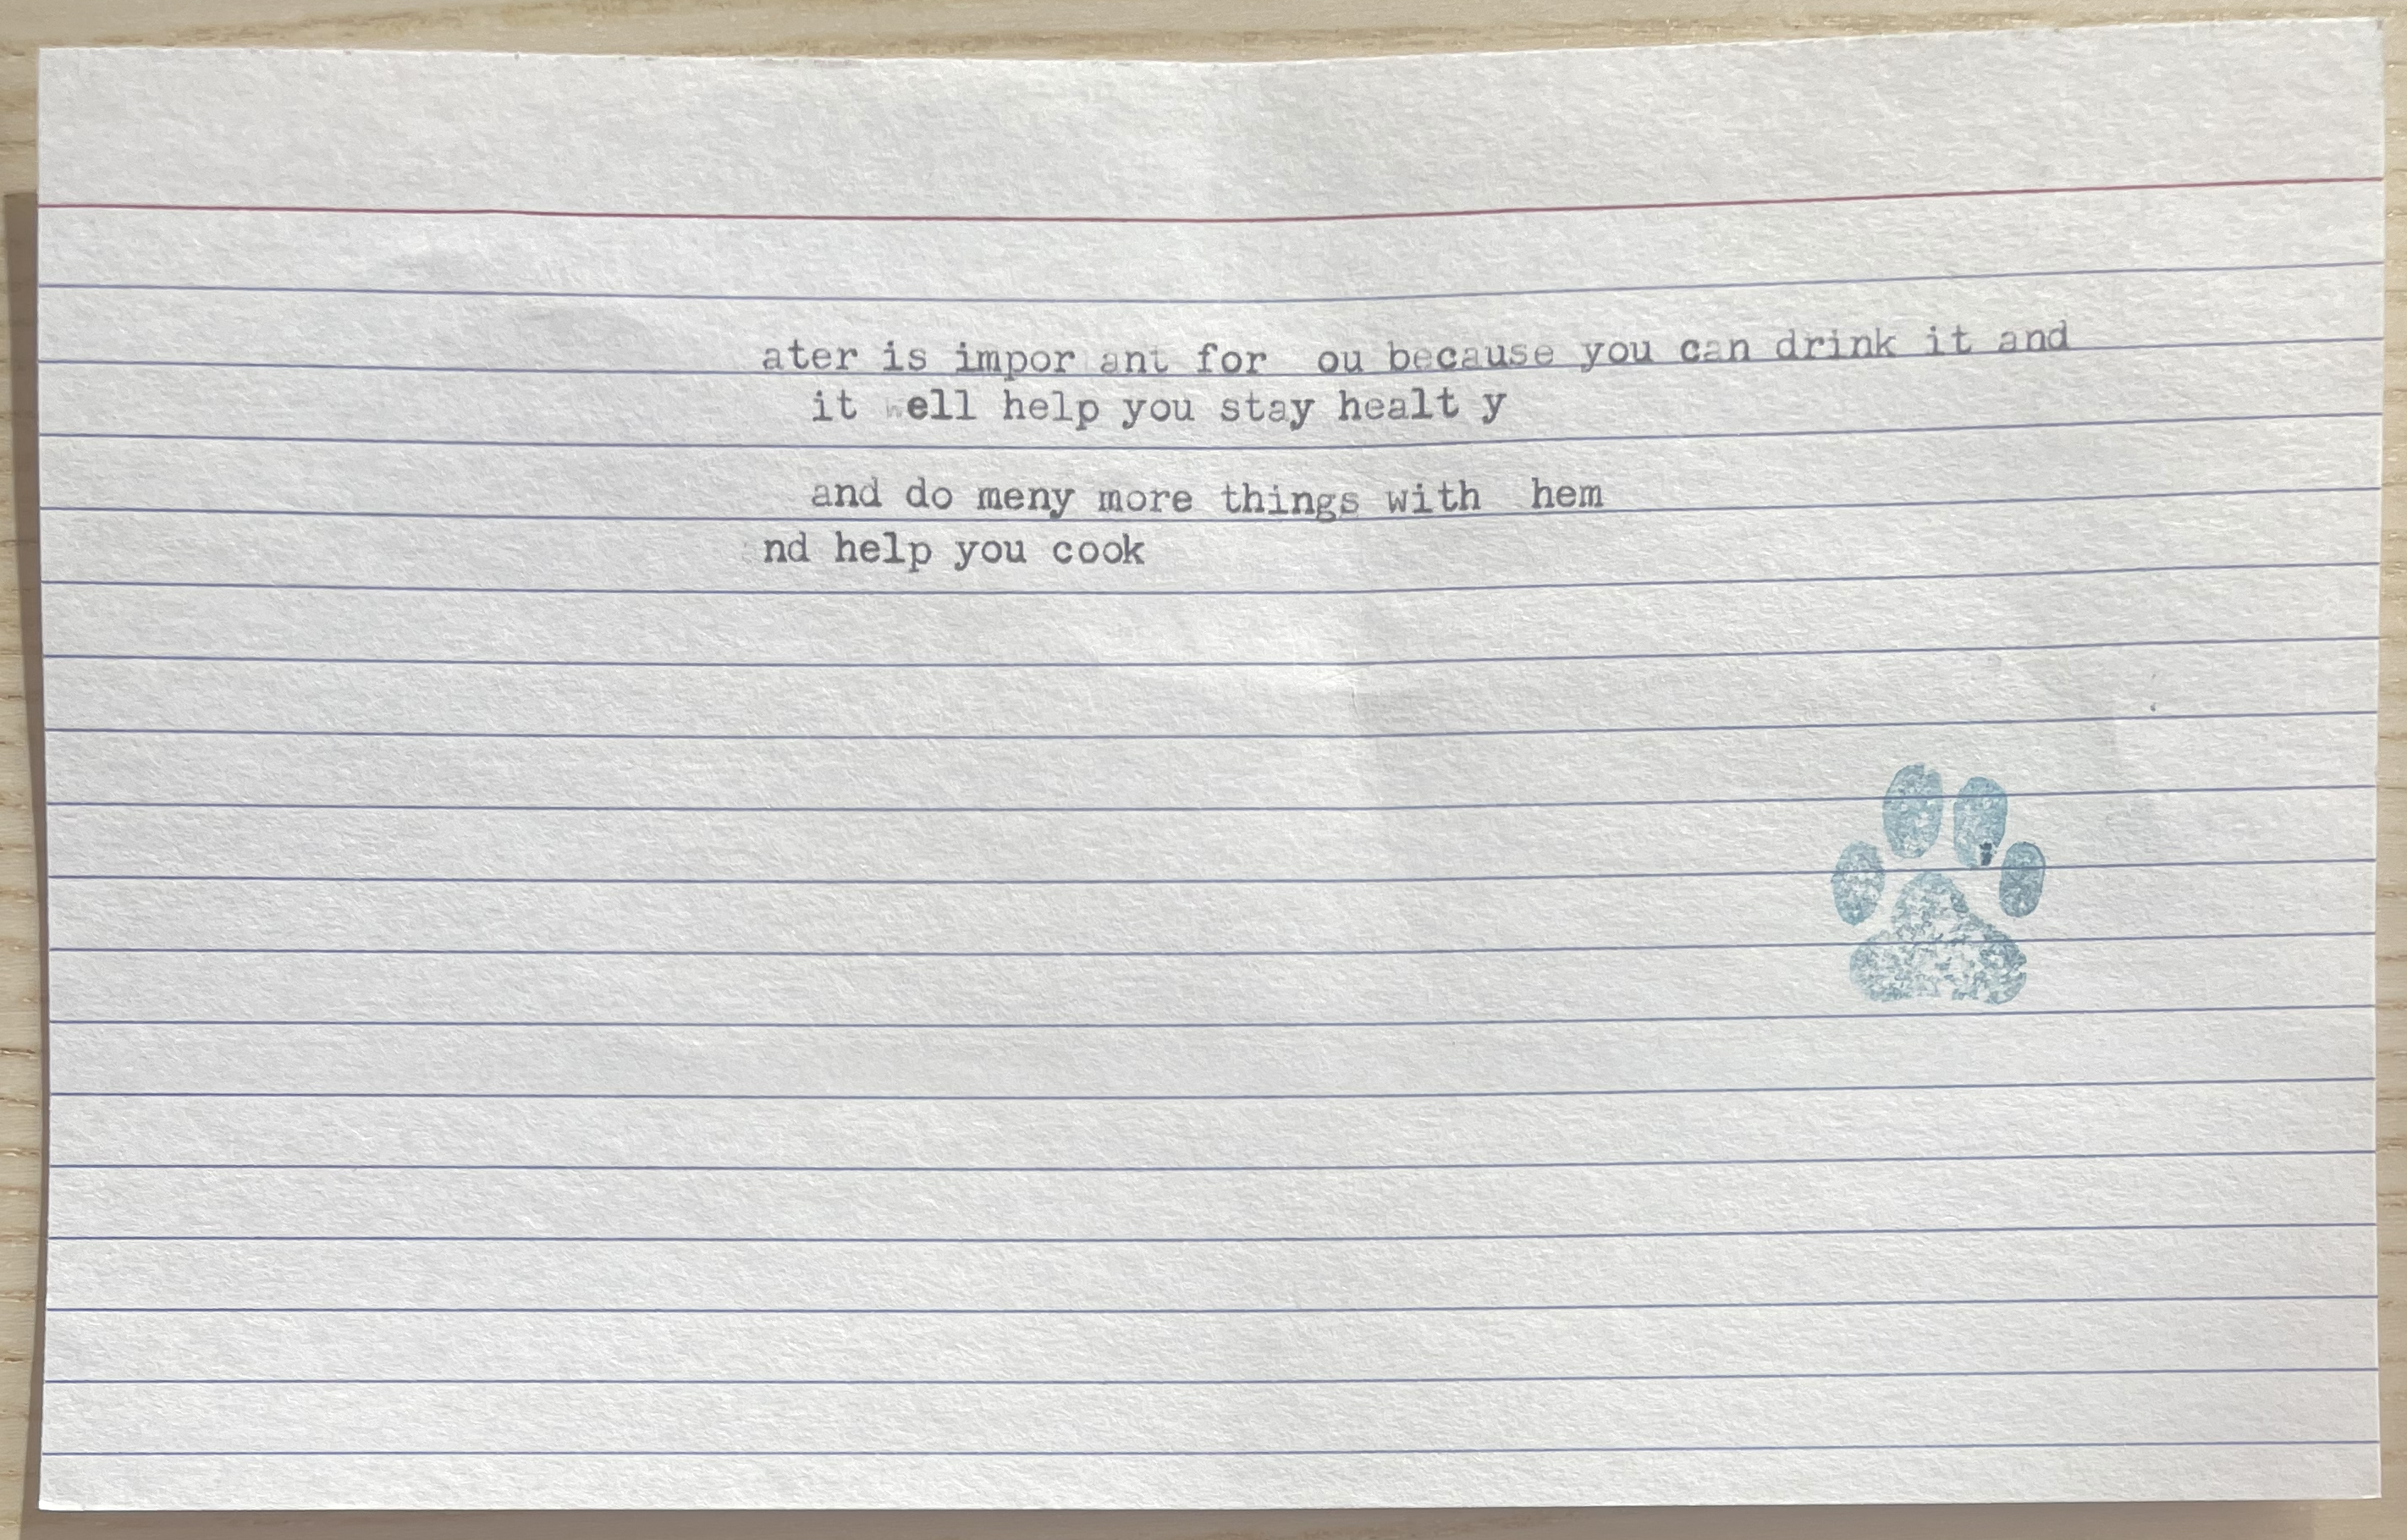 ater is impor ant for  ou because you can drink it and
it well help you stay healt y
and do meny more things with  hem
nd help you cook